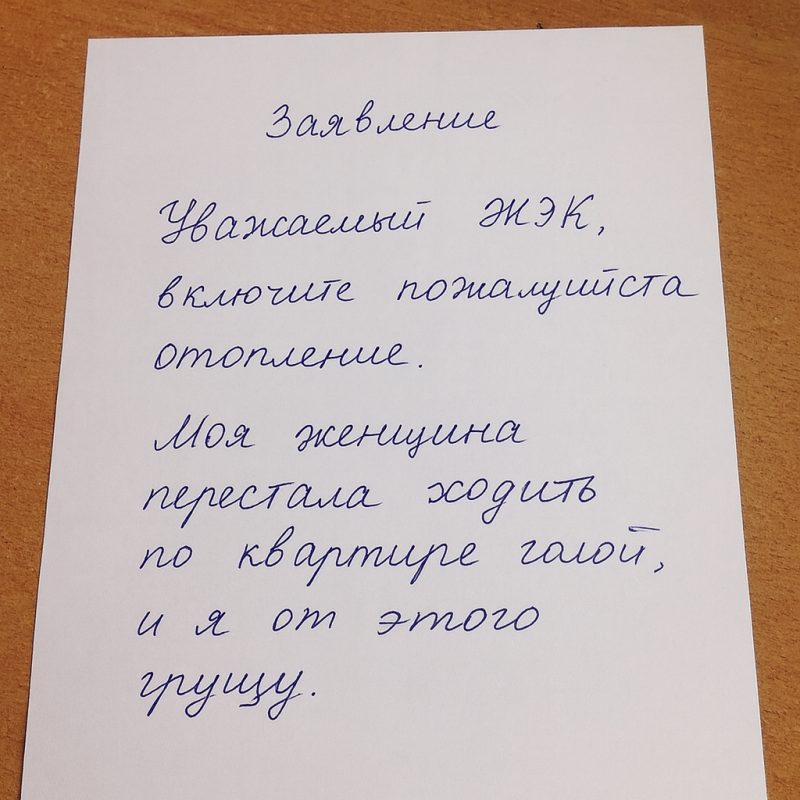 Заявление
Уважаемый ЖЭК,
включите пожалуийста
отопление.
Моя женщина
перестала ходить
по квартире голой,
и я от этого
грущу.